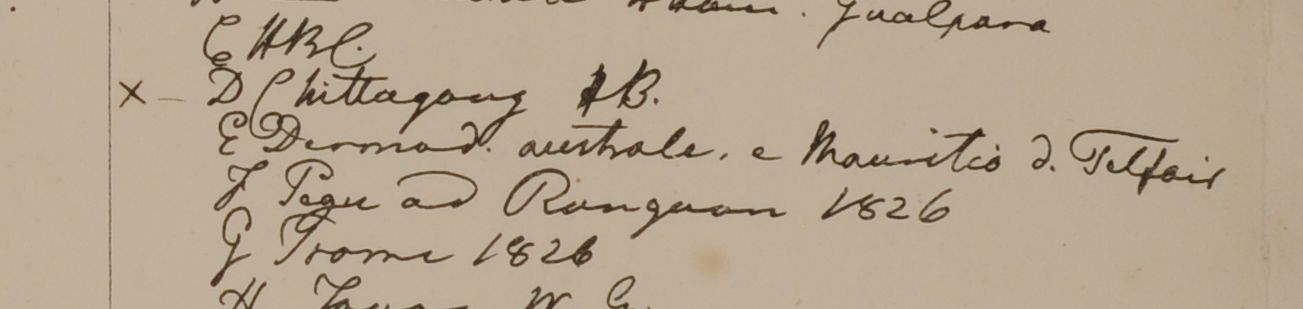 Gualpara
C HBC.
× D Chittagong HB.
E Desmod. australe. e Mauritio d. Telfair
F Pegu ad Rangoon 1826
G Prome 1826
H W. G.